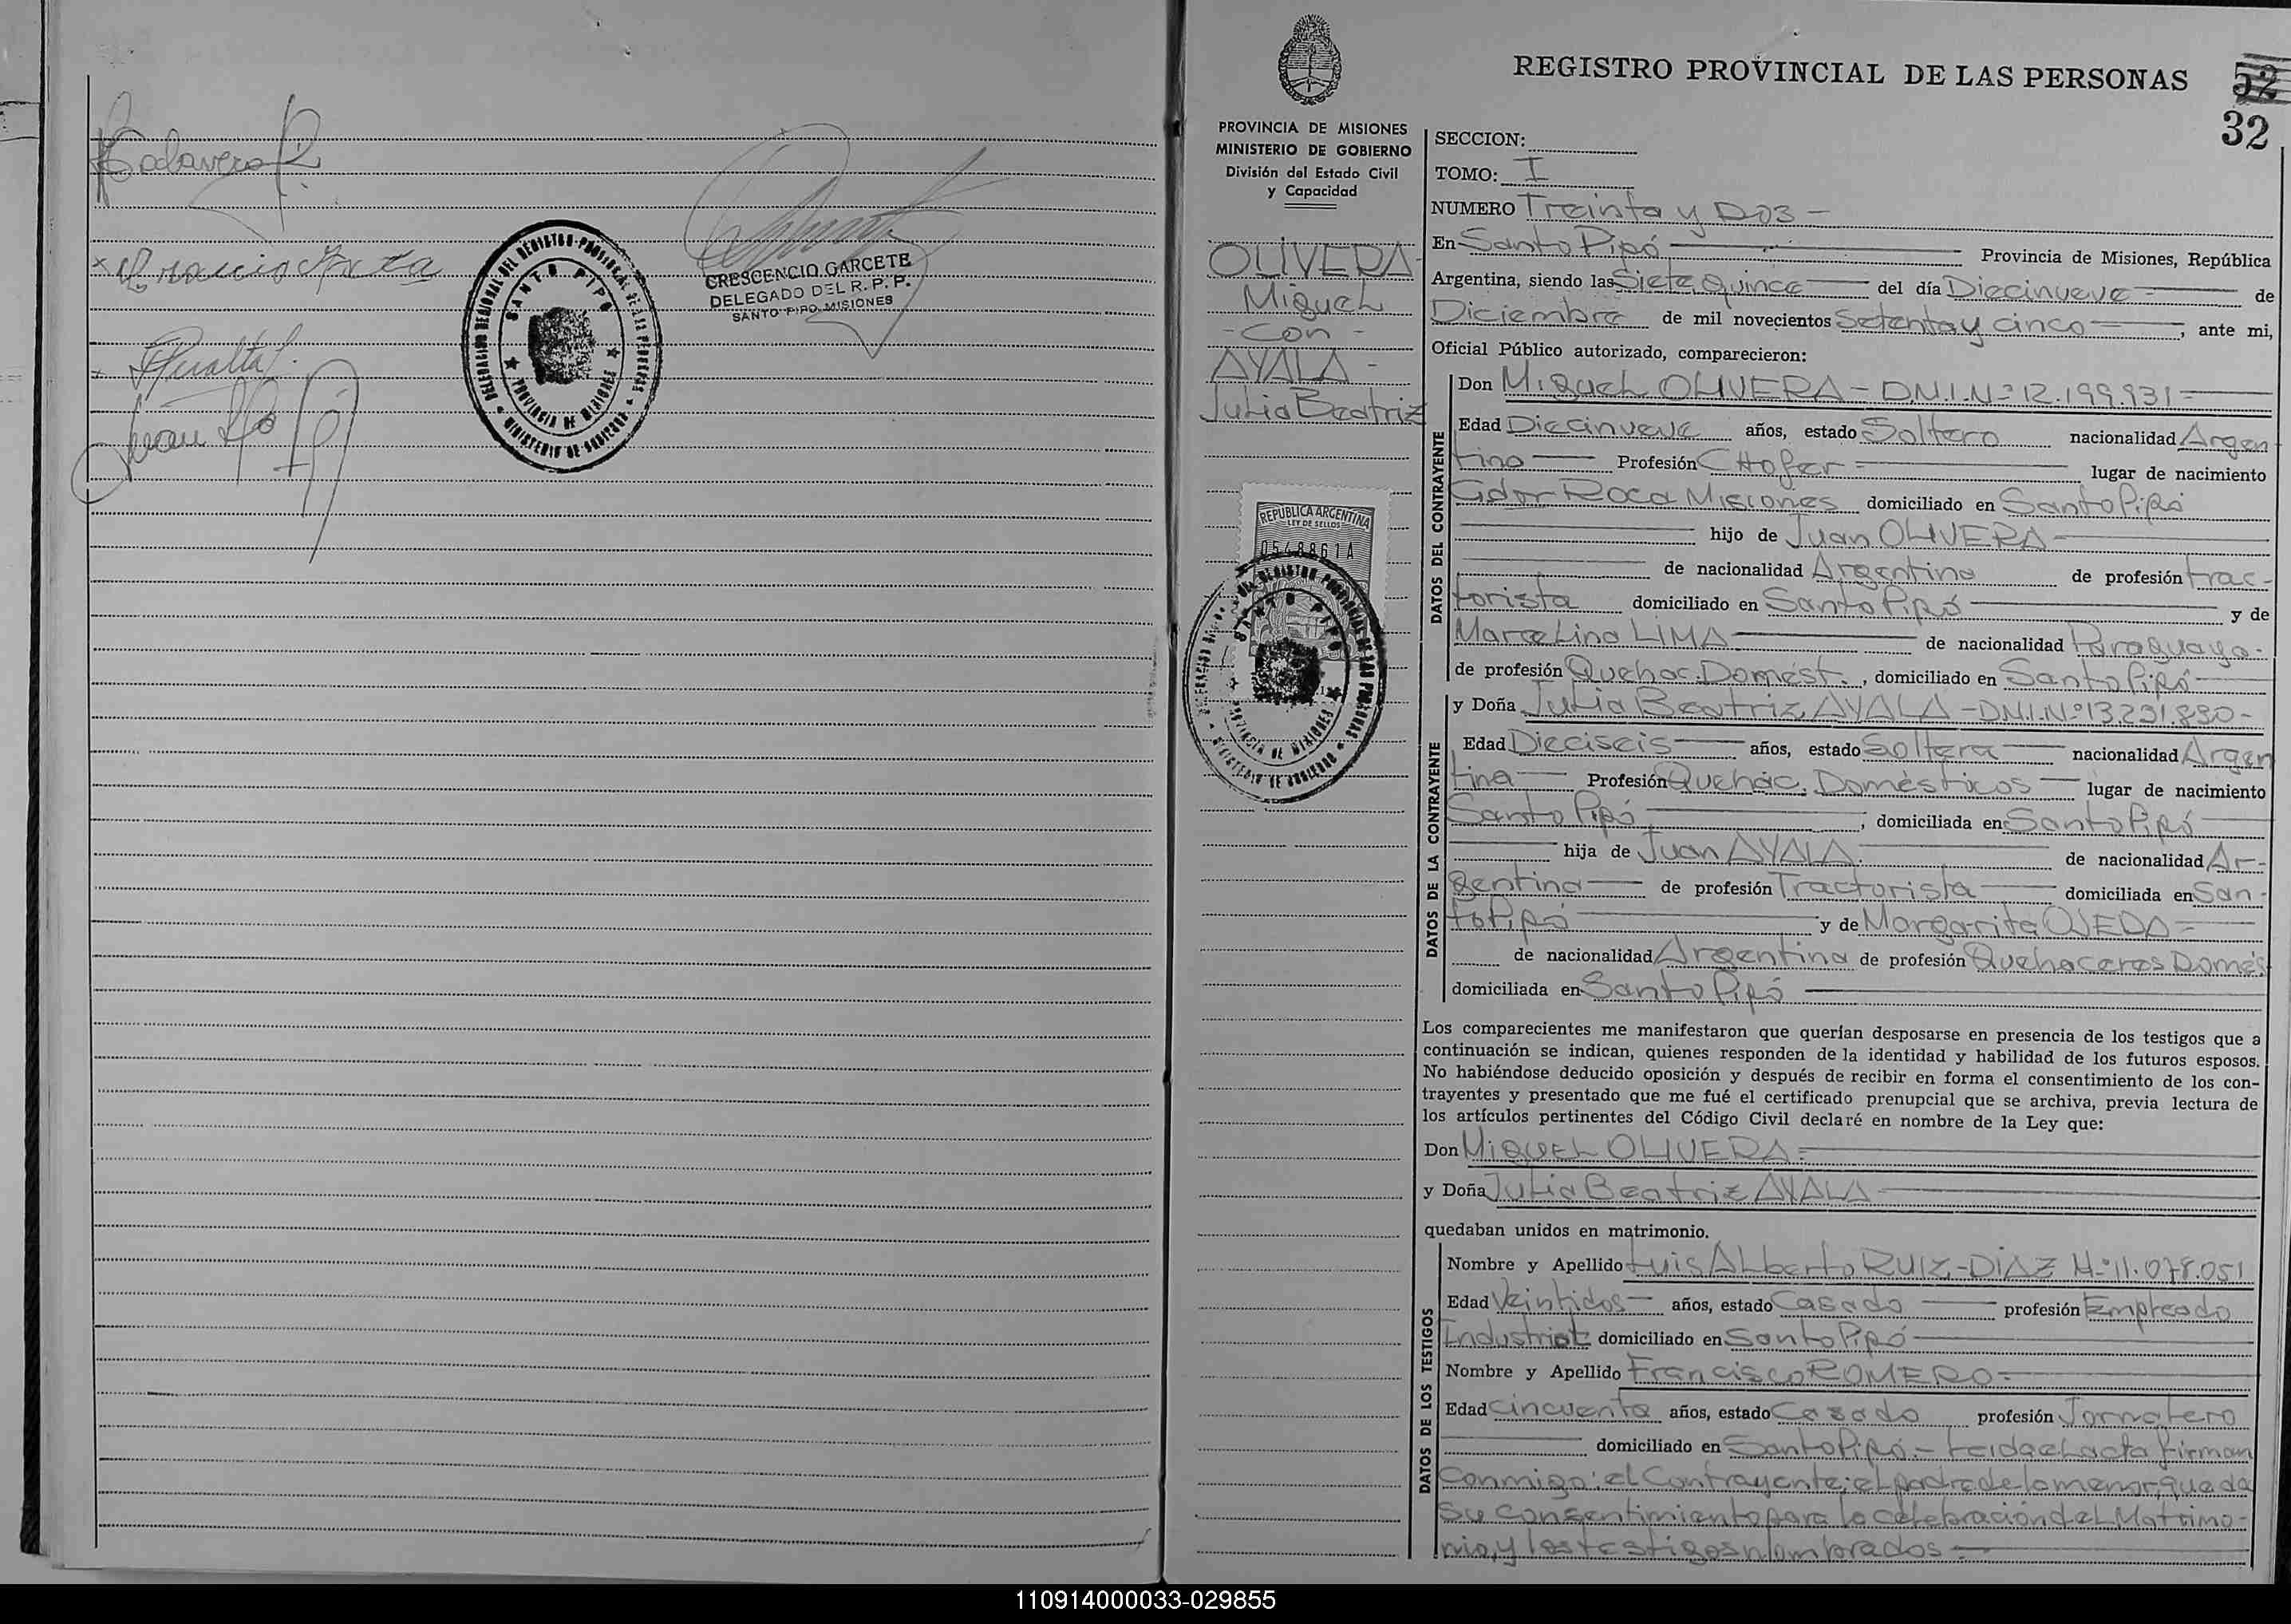 CRESCENCIO GARCETE
DELEGADO DEL R. P. P.
SANTO PIPO MISIONES
SANTO PIPO
PROVINCIA DE MISIONES
REGISTRO PROVINCIAL DE LAS PERSONAS
52
32
PROVINCIA DE MISIONES
MINISTERIO DE GOBIERNO
División del Estado Civil
y Capacidad
OLIVERA
Miguel
- con -
AYALA -
Julia Beatriz
REPUBLICA ARGENTINA
LEY DE SELLOS
0548861A
SANTO PIPO
PROVINCIA DE MISIONES
SECCION:
TOMO: I
NUMERO Treinta y Dos -
En Santo Pipó Provincia de Misiones, República
Argentina, siendo las Siete, Quince del día Diecinueve de
Diciembre de mil novecientos Setenta y cinco, ante mi,
Oficial Público autorizado, comparecieron:
DATOS DEL CONTRAYENTE
Don Miguel OLIVERA - D.N.I.Nº 12.199.931 -
Edad Diecinueve años, estado Soltero nacionalidad Argen
tino Profesión CHofer lugar de nacimiento
Gdor Roca Misiones domiciliado en Santo Pipó
hijo de Juan OLIVERA
de nacionalidad Argentino de profesión trac-
torista domiciliado en Santo Pipó y de
Marcelina LIMA de nacionalidad Paraguaya.
de profesión Quehac. Domést., domiciliado en Santo Pipó
DATOS DE LA CONTRAYENTE
y Doña Julia Beatriz AYALA - D.N.I.Nº 13.291.890 -
Edad Dieciseis años, estado Soltera nacionalidad Argen
tina Profesión Quehác. Domésticos lugar de nacimiento
Santo Pipó, domiciliada en Santo Pipó
hija de Juan AYALA. de nacionalidad Ar-
gentina de profesión Tractorista domiciliada en San-
to Pipó y de Margarita OJEDA
de nacionalidad Argentina de profesión Quehaceres Domés
domiciliada en Santo Pipó
Los comparecientes me manifestaron que querían desposarse en presencia de los testigos que a
continuación se indican, quienes responden de la identidad y habilidad de los futuros esposos.
No habiéndose deducido oposición y después de recibir en forma el consentimiento de los con-
trayentes y presentado que me fué el certificado prenupcial que se archiva, previa lectura de
los artículos pertinentes del Código Civil declaré en nombre de la Ley que:
Don Miguel OLIVERA
y Doña Julia Beatriz AYALA
quedaban unidos en matrimonio.
DATOS DE LOS TESTIGOS
Nombre y Apellido Luis Alberto RUIZ-DIAZ M.º 11.078.051
Edad Veintidos años, estado Casado profesión Empleado
Industrial domiciliado en Santo Pipó
Nombre y Apellido Francisco ROMERO
Edad cincuenta años, estado Casado profesión Jornalero
domiciliado en Santo Pipó.- Leida el acta firman
Conmigo: el Contrayente; el padre de la menor, que da
su consentimiento para la celebración del Matrimo-
nio, y los testigos nombrados.
110914000033-029855